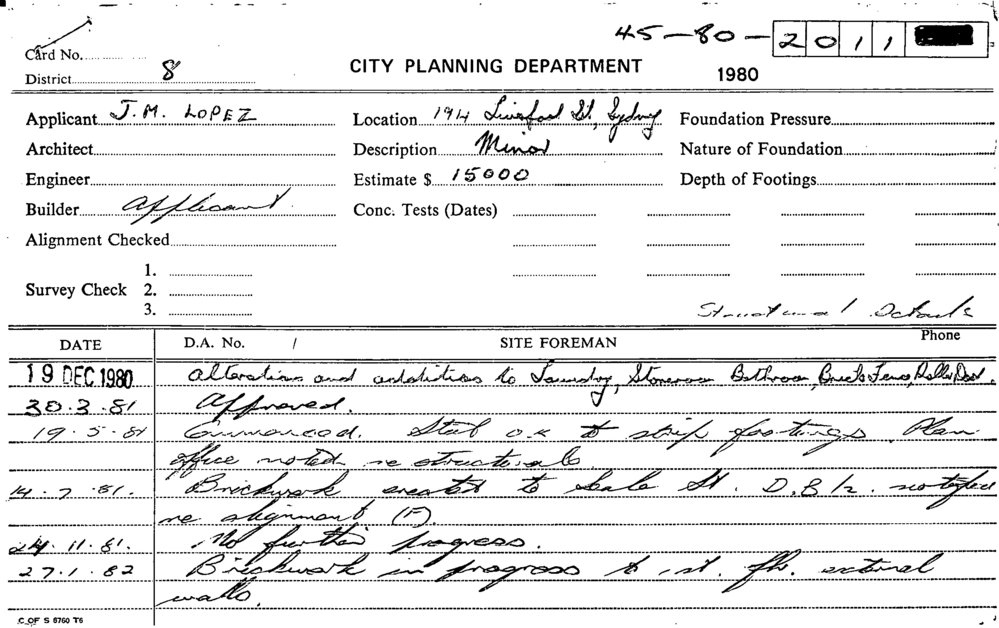 45-80-2011
Card No.
District 8
CITY PLANNING DEPARTMENT
1980
Applicant J.M. LOPEZ
Location 194 Liverpool St, Sydney
Foundation Pressure
Architect
Description Minor
Nature of Foundation
Engineer
Estimate $ 15000
Depth of Footings
Builder Applicant
Conc. Tests (Dates)
Alignment Checked
1.
Survey Check 2.
3.
Structural Details
DATE D.A. No. / SITE FOREMAN Phone
19 DEC 1980 Alterations and additions to Laundry, Storeroom Bathroom, Brick Fence, Roller Door.
30.3.81 Approved.
19.5.81 Commenced. Steel O.K to strip footings. Plan
office noted re structurals.
14.7.81. Brickwork erected to St. notified
re alignment (F).
24.11.81. No further progress.
27.1.82 Brickwork in progress to 1st. flr. external
walls.
C OF S 6760 T6